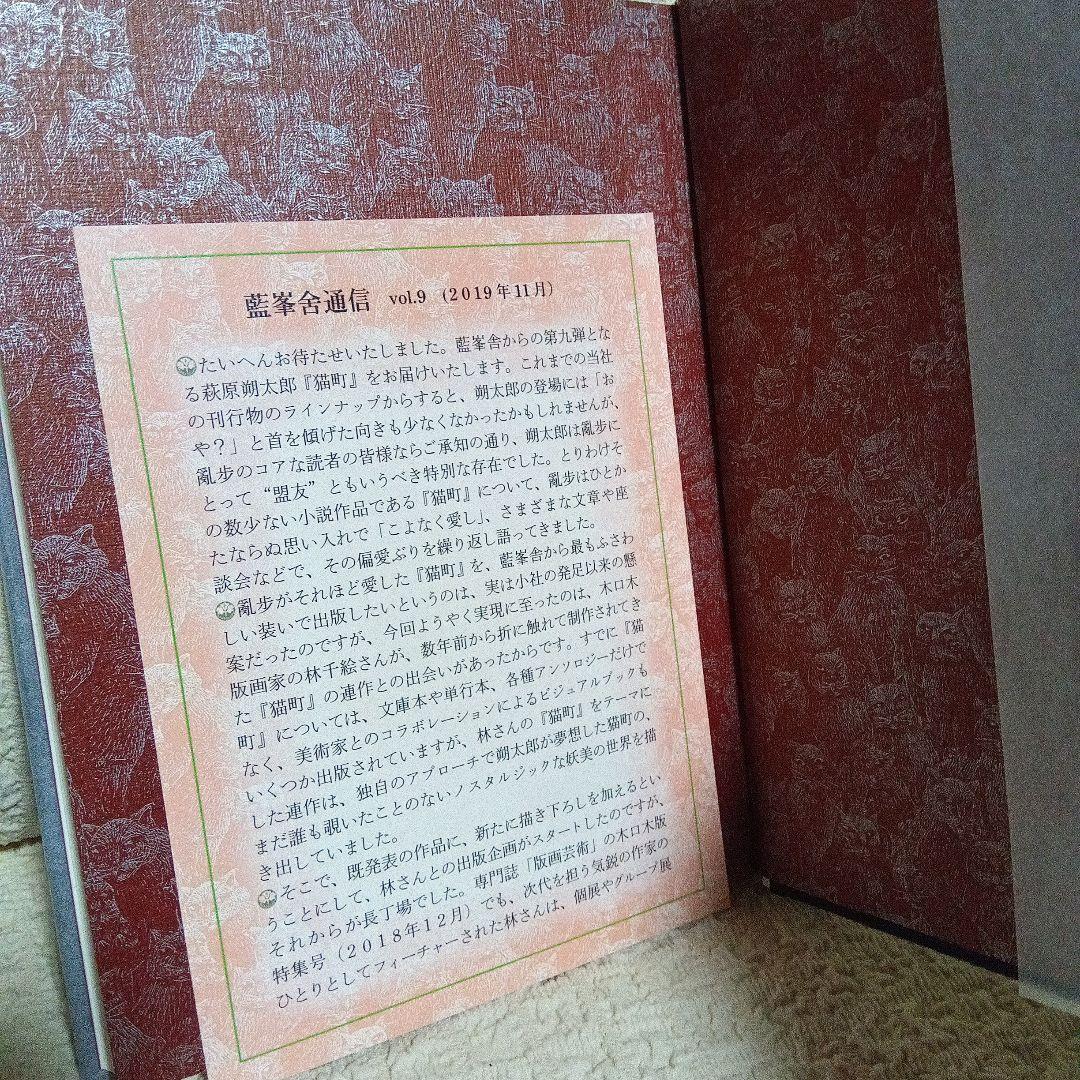 藍峯舎通信 vol.9 (2019年11月)
たいへんお待たせいたしました。藍峯舎からの第九弾とな
る萩原朔太郎『猫町』をお届けいたします。これまでの当社
の刊行物のラインナップからすると、朔太郎の登場には「お
や?」と首を傾げた向きも少なくなかったかもしれませんが、
亂歩のコアな読者の皆様ならご承知の通り、朔太郎は亂歩に
とって“盟友”ともいうべき特別な存在でした。とりわけそ
の数少ない小説作品である『猫町』について、亂歩はひとか
たならぬ思い入れで「こよなく愛し」、さまざまな文章や座
談会などで、その偏愛ぶりを繰り返し語ってきました。
亂歩がそれほど愛した『猫町』を、藍峯舎から最もふさわ
しい装いで出版したいというのは、実は小社の発足以来の懸
案だったのですが、今回ようやく実現に至ったのは、木口木
版画家の林千絵さんが、数年前から折に触れて制作されてき
た『猫町』の連作との出会いがあったからです。すでに『猫
町』については、文庫本や単行本、各種アンソロジーだけで
なく、美術家とのコラボレーションによるビジュアルブックも
いくつか出版されていますが、林さんの『猫町』をテーマに
した連作は、独自のアプローチで朔太郎が夢想した猫町の、
まだ誰も覗いたことのないノスタルジックな妖美の世界を描
き出していました。
そこで、既発表の作品に、新たに描き下ろしを加えるとい
うことにして、林さんとの出版企画がスタートしたのですが、
それからが長丁場でした。専門誌「版画芸術」の木口木版
特集号(2018年12月)でも、次代を担う気鋭の作家の
ひとりとしてフィーチャーされた林さんは、個展やグループ展